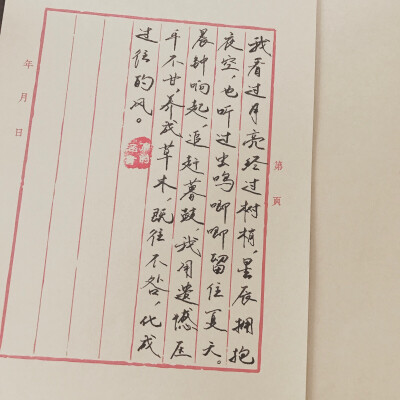 第 頁
我看过月亮经过树梢，星辰拥抱
夜空，也听过虫鸣唧唧留住夏天。
晨钟响起，追赶暮鼓，我用遗憾压
平不甘，养成草木，既往不咎，化成
过往的风。
年 月 日